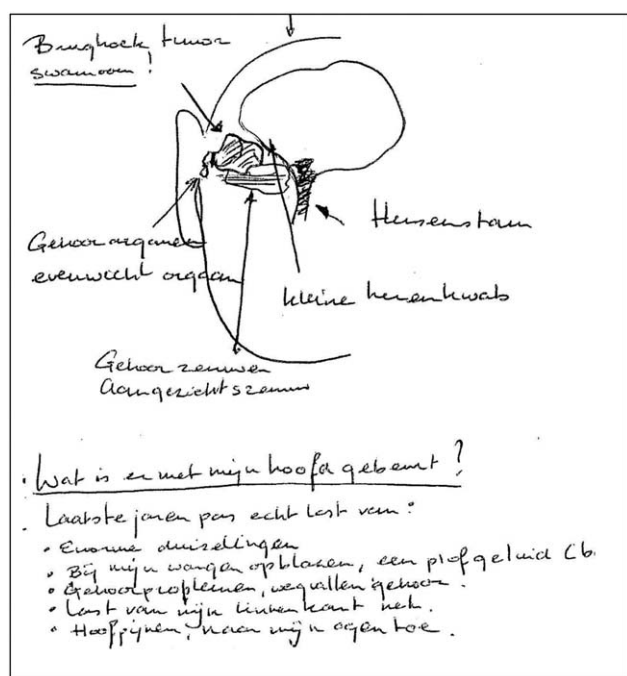 Brughoek tumor
swanoom!
Hersenstam
Gehoor organen
evenwicht orgaan
kleine hersenkwab
Gehoor zenuwen
Aangezichtszenuw
Wat is er met mijn hoofd gebeurt?
Laatste jaren pas echt last van:
• Enorme duizelingen
• Bij mijn wangen opblazen, een plofgeluid
• Gehoorproblemen, wegvallen gehoor.
• Last van mijn linkerkant nek.
• Hoofdpijnen, naar mijn ogen toe.